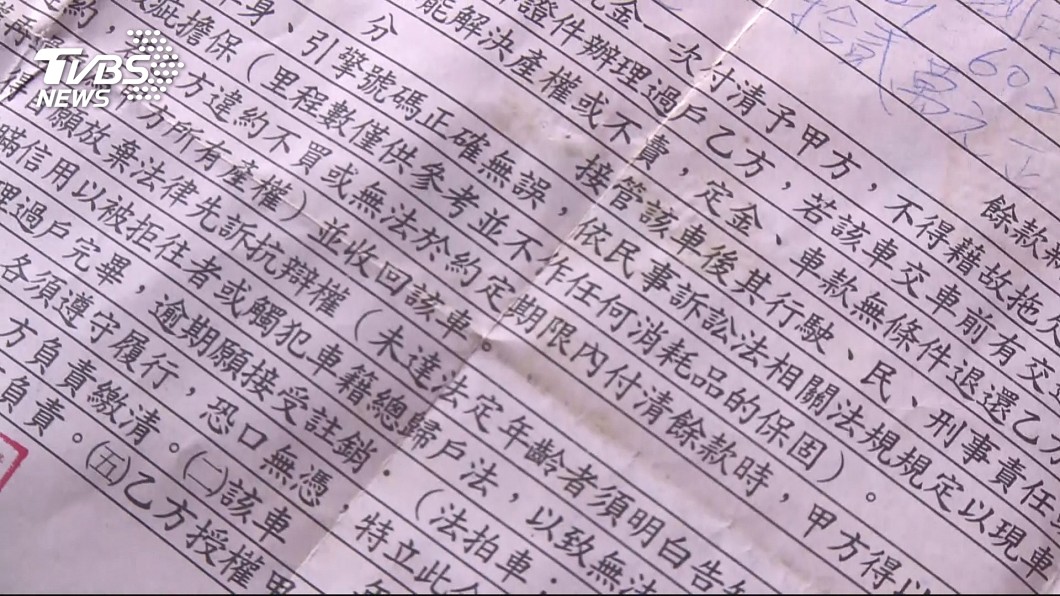 TVBS
NEWS
602
拾貳萬元
餘款
金一次付清予甲方，不得藉故拖
證件辦理過戶乙方，若該車交車前有交
能解決產權或不賣，定金、車款無條件退還乙方
分
接管該車後其行駛、民、刑事責任
身、引擎號碼正確無誤，依民事訴訟法相關法規規定以現車
疵擔保（里程數僅供參考並不作任何消耗品的保固）。
方違約不買或無法於約定期限內付清餘款時，甲方得以
方所有產權）並收回該車。
願放棄法律先訴抗辯權（未達法定年齡者須明白告
瞞信用以被拒往者或觸犯車籍總歸戶法，以致無法
理過戶完畢，逾期願接受註銷。（法拍車：
各須遵守履行，恐口無憑，特立此合
方負責繳清。㈡該車
負責。㈤乙方授權甲